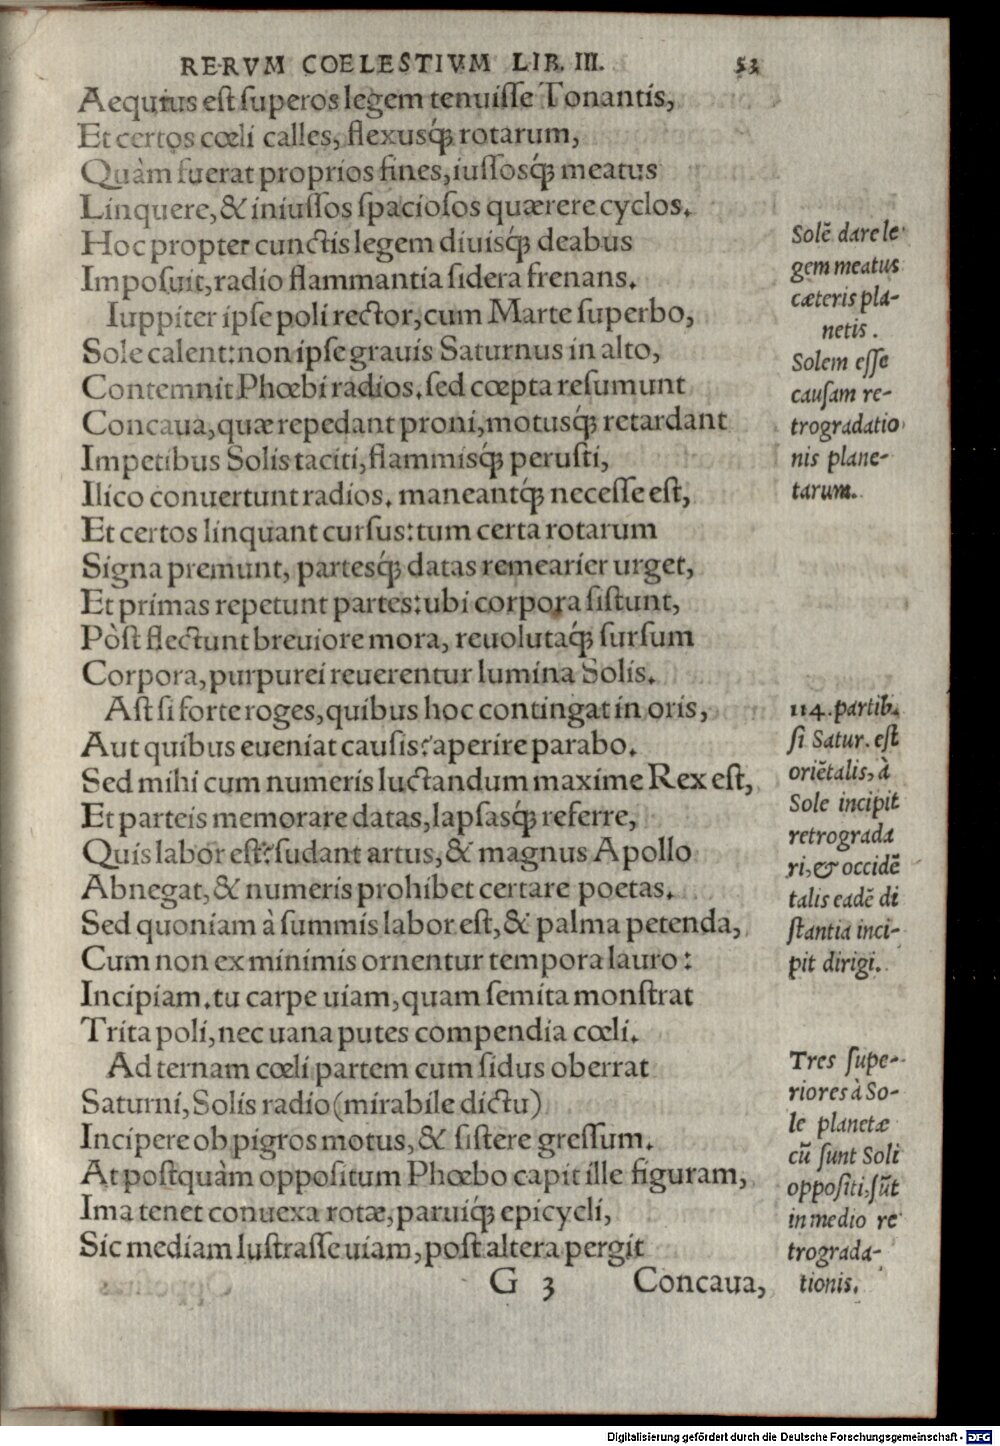 RERVM COELESTIVM LIB. III. 53
Aequius est superos legem tenuisse Tonantis,
Et certos cœli calles, flexusq́; rotarum,
Quàm fuerat proprios fines, iussosq́; meatus
Linquere, & iniussos spaciosos quærere cyclos.
Hoc propter cunctis legem diuisq́; deabus
Imposuit, radio flammantia sidera frenans.
Iuppiter ipse poli rector, cum Marte superbo,
Sole calent: non ipse grauis Saturnus in alto,
Contemnit Phœbi radios. sed cœpta resumunt
Concaua, quæ repedant proni, motusq́; retardant
Impetibus Solis taciti, flammisq́; perusti,
Ilico conuertunt radios. maneantq́; necesse est,
Et certos linquant cursus: tum certa rotarum
Signa premunt, partesq́; datas remearier urget,
Et primas repetunt partes: ubi corpora sistunt,
Pòst flectunt breuiore mora, reuolutaq́; sursum
Corpora, purpurei reuerentur lumina Solis.
Ast si forte roges, quibus hoc contingat in oris,
Aut quibus eueniat causis? aperire parabo.
Sed mihi cum numeris luctandum maxime Rex est,
Et parteis memorare datas, lapsasq́; referre,
Quis labor est? sudant artus, & magnus Apollo
Abnegat, & numeris prohibet certare poetas.
Sed quoniam à summis labor est, & palma petenda,
Cum non ex minimis ornentur tempora lauro:
Incipiam. tu carpe uiam, quam semita monstrat
Trita poli, nec uana putes compendia cœli.
Ad ternam cœli partem cum sidus oberrat
Saturni, Solis radio (mirabile dictu)
Incipere ob pigros motus, & sistere gressum.
At postquàm oppositum Phœbo capit ille figuram,
Ima tenet conuexa rotæ, paruiq́; epicycli,
Sic mediam lustrasse uiam, post altera pergit
G 3 Concaua,
Solē dare le
gem meatus
cæteris pla-
netis.
Solem esse
causam re-
trogradatio
nis plane-
tarum.
114. partib.
si Satur. est
oriētalis, à
Sole incipit
retrograda
ri, & occidē
talis eadē di
stantia inci-
pit dirigi.
Tres supe-
riores à So-
le planetæ
cū sunt Soli
oppositi, sūt
in medio re
trograda-
tionis.
Digitalisierung gefördert durch die Deutsche Forschungsgemeinschaft - DFG